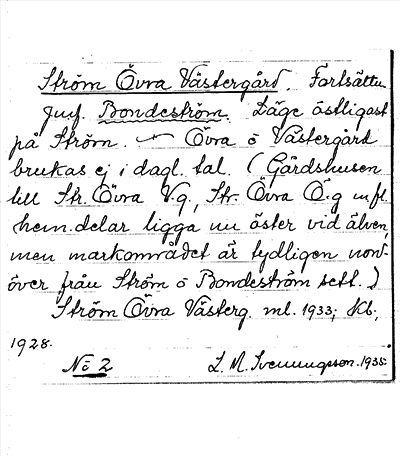 Ström Övra Västergård. Fortsättn.
Jmf. Bondeström. Läge östligast
på Ström. — Övra o Västergård
brukas ej i dagl. tal. (Gårdshusen
till Str. Övra V.g., Str. Övra Ö.g m fl.
hem.delar ligga nu öster vid älven,
men markområdet är tydligen norr
över från Ström o Bondeström sett.)
Ström Övra Västerg. ml. 1933; Kb.,
1928.
No 2 L. M. Svenungsson. 1935.